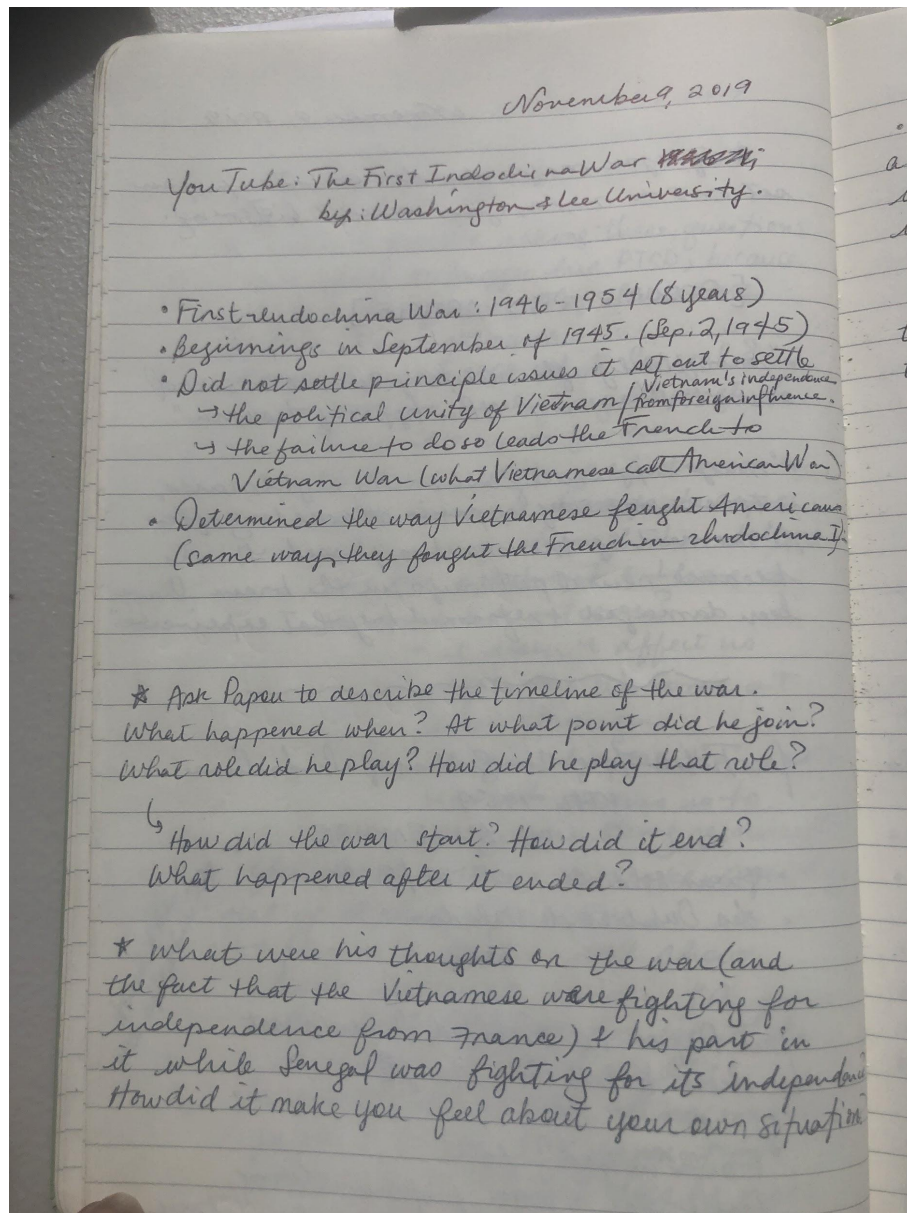 November 9, 2019
YouTube: The First Indochina War
by: Washington & Lee University.
• First Indochina War: 1946-1954 (8 years)
• Beginnings in September of 1945. (Sep. 2, 1945)
• Did not settle principle issues it set out to settle
→ the political unity of Vietnam / Vietnam's independence from foreign influence.
→ the failure to do so leads the French to
Vietnam War (what Vietnamese call American War)
• Determined the way Vietnamese fought Americans
(same way they fought the French in Indochina I).
* Ask Papou to describe the timeline of the war.
What happened when? At what point did he join?
What role did he play? How did he play that role?
↳ How did the war start? How did it end?
What happened after it ended?
* What were his thoughts on the war (and
the fact that the Vietnamese were fighting for
independence from France) & his part in
it while Senegal was fighting for its independence
How did it make you feel about your own situation